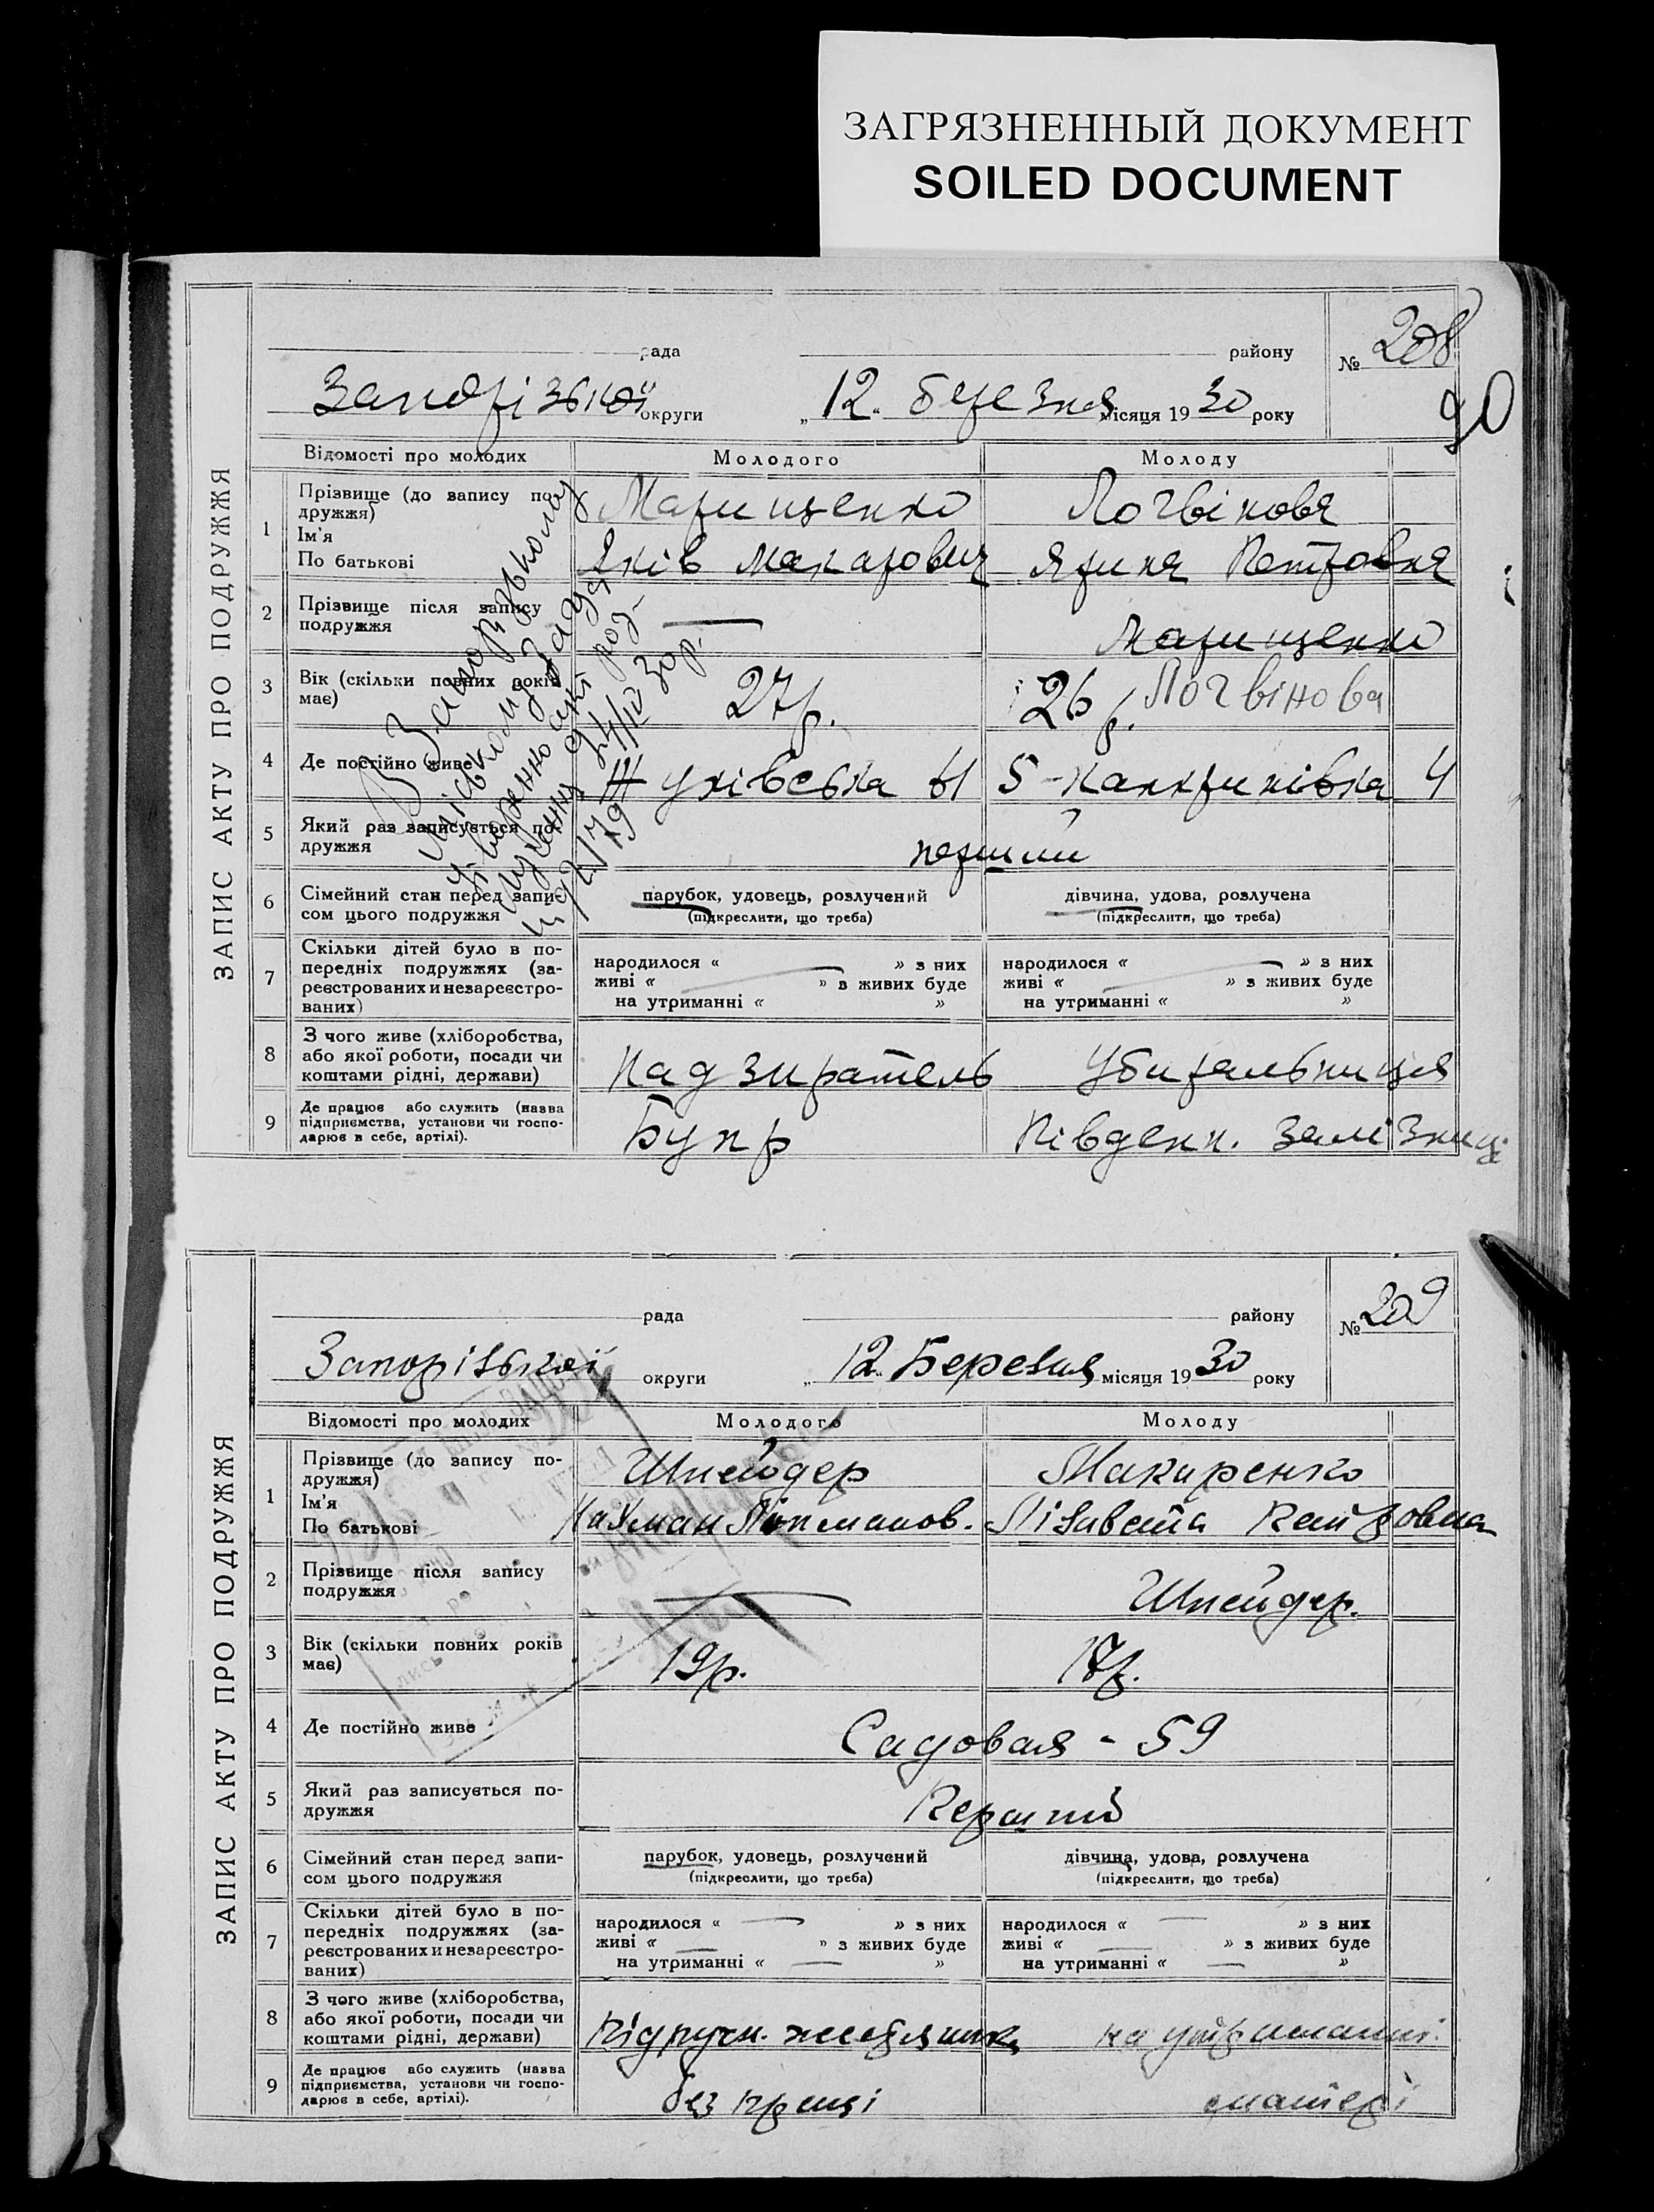 ЗАГРЯЗНЕННЫЙ ДОКУМЕНТ
SOILED DOCUMENT
ЗАПИС АКТУ ПРО ПОДРУЖЖЯ
рада району № 208
Запорізької округи „12“ березня місяця 1930 року
90
Відомості про молодих Молодого Молоду
1 Прізвище (до запису по-
дружжя) Марищенко Логвінова
Ім'я
По батькові Яків Макарович Ярина Петровна
2 Прізвище після запису
подружжя — Марищенко
Логвінова
3 Вік (скільки повних років
має) 27 р. 26 р.
4 Де постійно живе 5-Канкринівка 4
5 Який раз записується по-
дружжя перший
6 Сімейний стан перед запи-
сом цього подружжя
парубок, удовець, розлучений дівчина, удова, розлучена
(підкреслити, що треба) (підкреслити, що треба)
7 Скільки дітей було в по-
передніх подружжях (за-
реєстрованих и незареєстро-
ваних)
народилося « » з них народилося « » з них
живі « » з живих буде живі « » з живих буде
на утриманні « » на утриманні « »
8 З чого живе (хліборобства,
або якої роботи, посади чи
коштами рідні, держави) Надзиратель Убиральниця
9 Де працює або служить (назва
підприємства, установи чи госпо-
дарює в себе, артілі). Бупр Південн. Залізниці
ЗАПИС АКТУ ПРО ПОДРУЖЖЯ
рада району № 209
Запорізької округи „12“ Березня місяця 1930 року
Відомості про молодих Молодого Молоду
1 Прізвище (до запису по-
дружжя) Шнейдер Макаренко
Ім'я
По батькові Нахман Лізавета
2 Прізвище після запису
подружжя — Шнейдер.
3 Вік (скільки повних років
має) 19 р. 17 р.
4 Де постійно живе Садовая - 59
5 Який раз записується по-
дружжя Перший
6 Сімейний стан перед запи-
сом цього подружжя
парубок, удовець, розлучений дівчина, удова, розлучена
(підкреслити, що треба) (підкреслити, що треба)
7 Скільки дітей було в по-
передніх подружжях (за-
реєстрованих и незареєстро-
ваних)
народилося « — » з них народилося « — » з них
живі « — » з живих буде живі « — » з живих буде
на утриманні « — » на утриманні « — »
8 З чого живе (хліборобства,
або якої роботи, посади чи
коштами рідні, держави) підручн. на утриманні
9 Де працює або служить (назва
підприємства, установи чи госпо-
дарює в себе, артілі). без праці матері